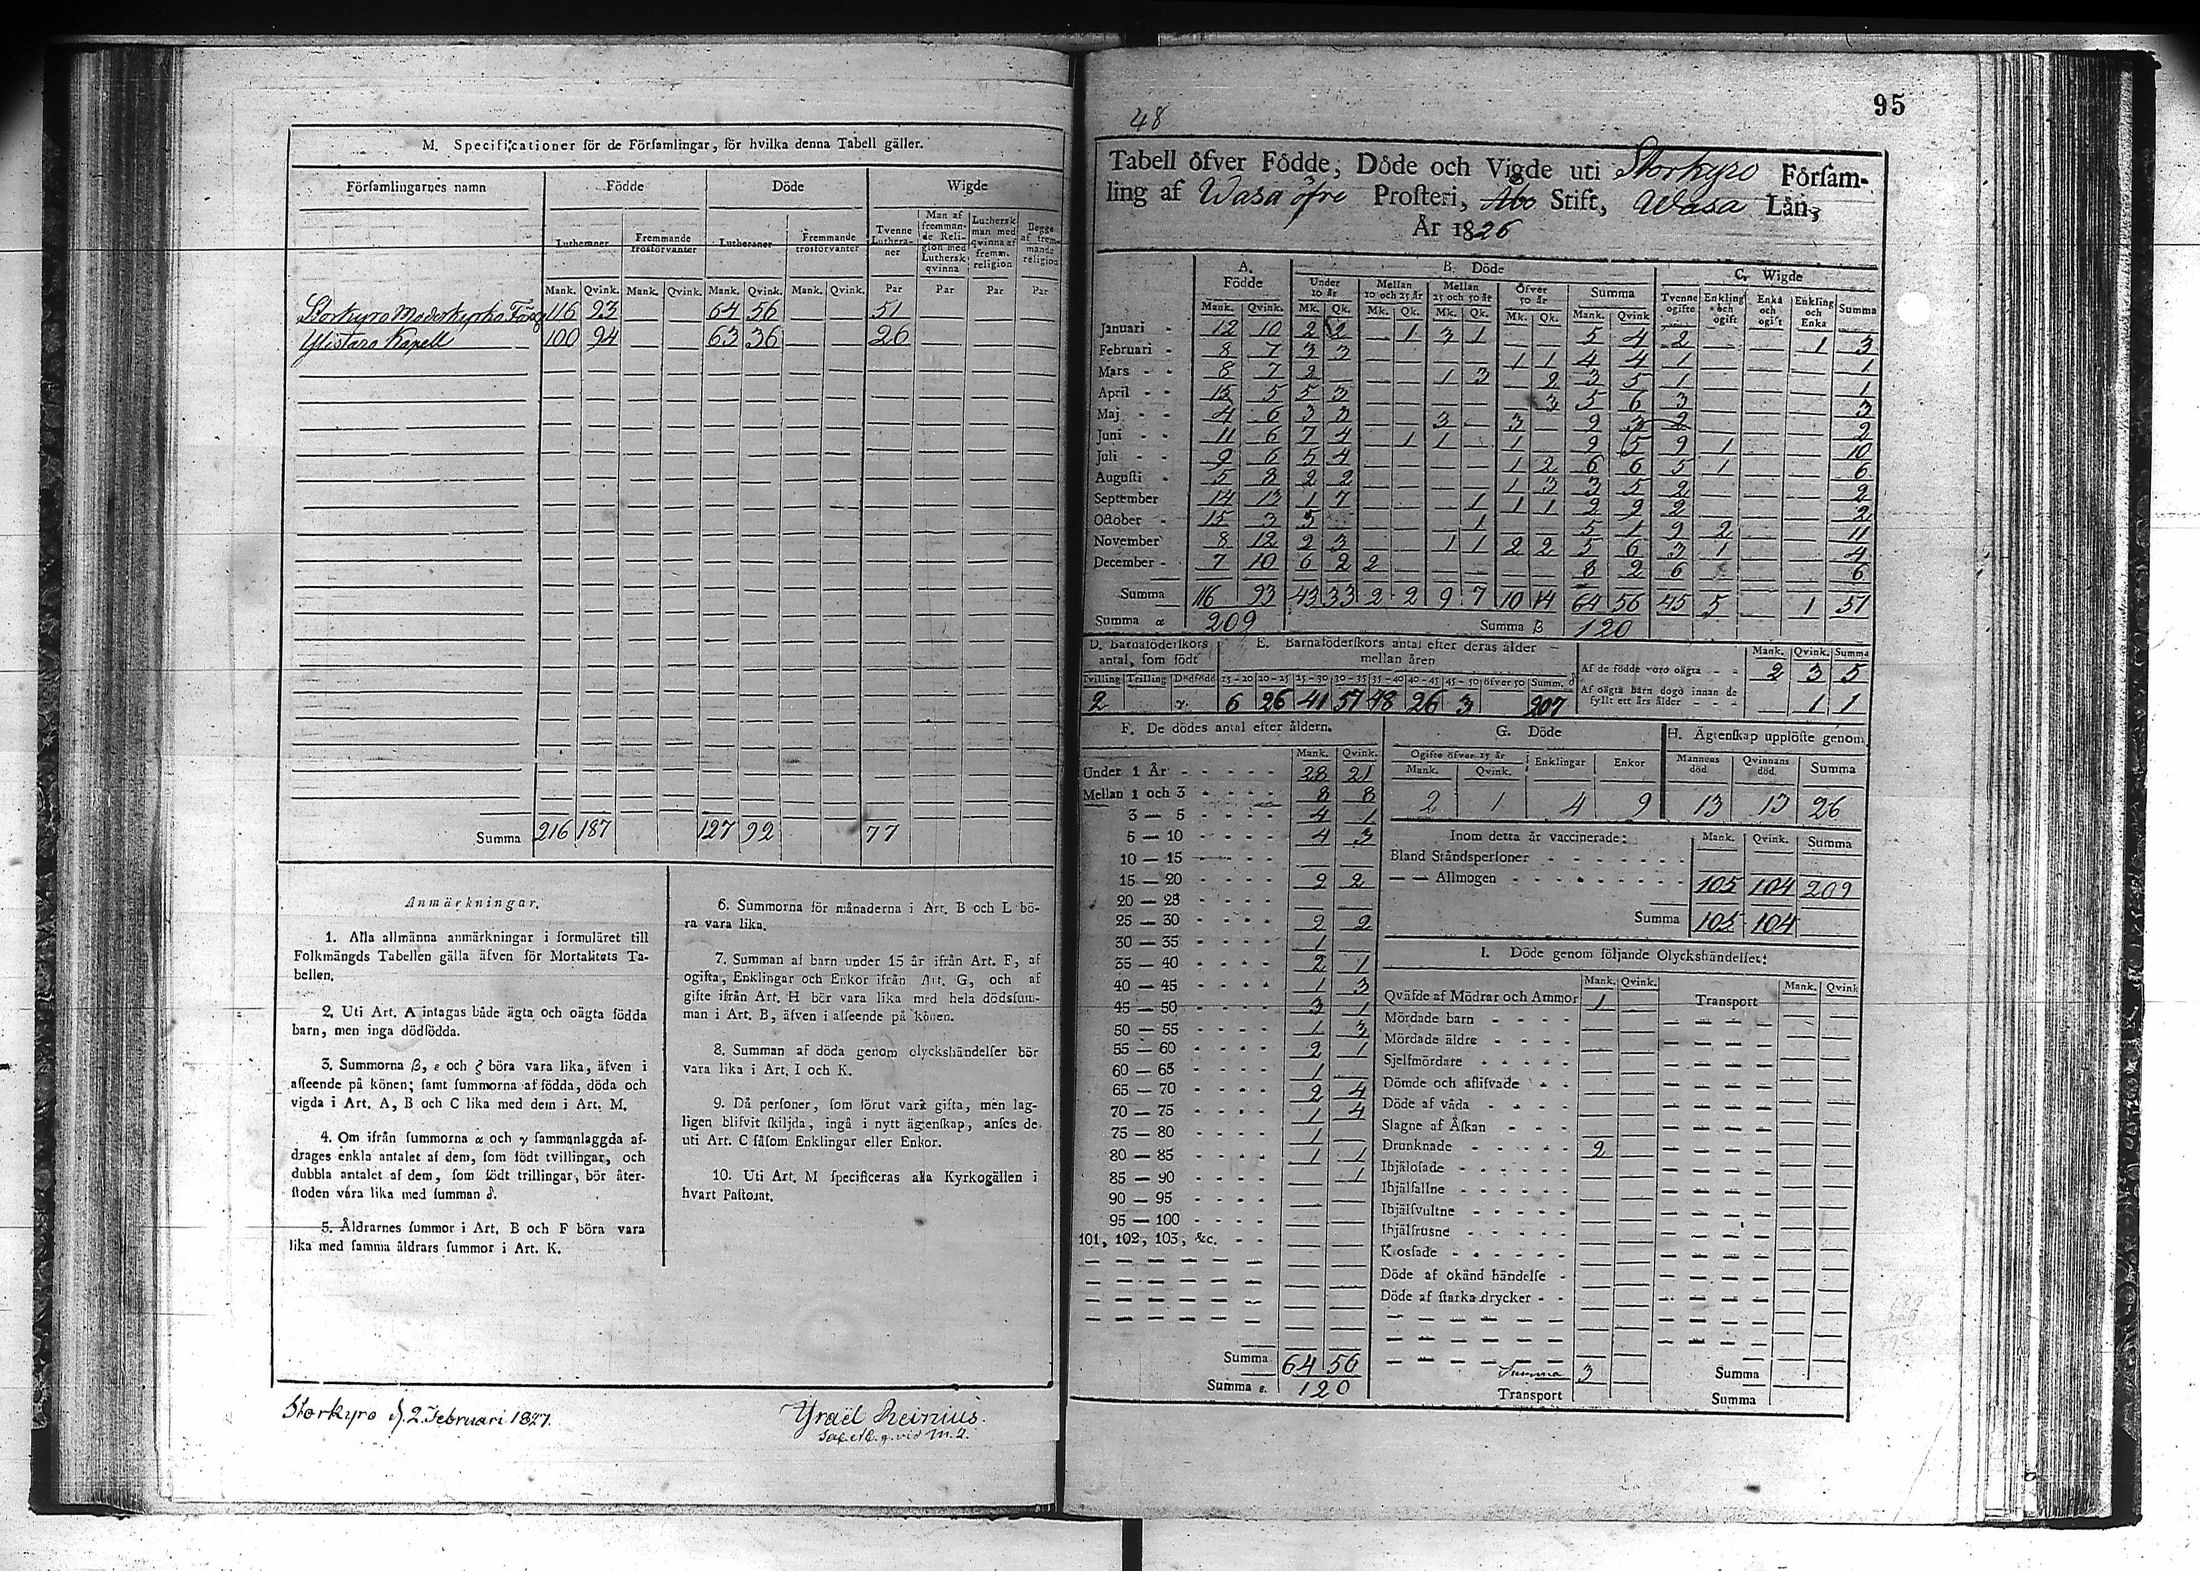 M. Specificationer för de Församlingar, för hvilka denna Tabell gäller.
Församlingarnes namn Födde Döde Wigde
Lutheraner Fremmande trosförvanter Lutheraner Fremmande trosförvanter Tvenne Lutheraner Man af fremmande Religion med Luthersk qvinna Luthersk man med qvinna af fremm. religion Begge af fremmande religion
Mank. Qvink. Mank. Qvink. Mank. Qvink. Mank. Qvink. Par Par Par Par
Storkyro Moderkyrko Förs 116 93 64 56 51
Ylistaro Kapell 100 94 63 36 26
Summa 216 187 127 92 77
Anmärkningar.
1. Alla allmänna anmärkningar i formuläret till
Folkmängds Tabellen gälla äfven för Mortalitets Ta-
bellen.
2. Uti Art. A intagas både ägta och oägta födda
barn, men inga dödfödda.
3. Summorna β, ε och ζ böra vara lika, äfven i
afseende på könen; samt summorna af födda, döda och
vigda i Art. A, B och C lika med dem i Art. M.
4. Om ifrån summorna α och γ sammanlaggda af-
drages enkla antalet af dem, som födt tvillingar, och
dubbla antalet af dem, som födt trillingar, bör åter-
stoden vara lika med summan δ.
5. Åldrarnes summor i Art. B och F böra vara
lika med samma åldrars summor i Art. K.
6. Summorna för månaderna i Art. B och L bö-
ra vara lika.
7. Summan af barn under 15 år ifrån Art. F, af
ogifta, Enklingar och Enkor ifrån Art. G, och af
gifte ifrån Art. H bör vara lika med hela dödssum-
man i Art. B, äfven i afseende på könen.
8. Summan af döda genom olyckshändelser bör
vara lika i Art. I och K.
9. Då personer, som förut varit gifta, men lag-
ligen blifvit skiljda, ingå i nytt ägtenskap, anses de
uti Art. C såsom Enklingar eller Enkor.
10. Uti Art. M specificeras alla Kyrkogällen i
hvart Pastorat.
Storkyro d. 2. Februari 1827.
Yraël Reinius.
48
95
Tabell öfver Födde, Döde och Vigde uti Storkyro Försam-
ling af Wasa öfre Prosteri, Åbo Stift, Wasa Län,
År 1826
A. Födde B. Döde C. Wigde
Under 10 år Mellan 10 och 25 år Mellan 25 och 50 år Öfver 50 år Summa Tvenne ogifte Enkling och ogift Enka och ogift Enkling och Enka Summa
Mank. Qvink. Mk. Qk. Mk. Qk. Mk. Qk. Mk. Qk. Mank. Qvink
Januari 12 10 2 2 1 3 1 5 4 2 1 3
Februari 8 7 3 3 1 1 4 4 1 1
Mars 8 7 2 1 3 2 3 5 1 1
April 15 5 5 3 3 5 6 3 3
Maj 4 6 3 3 3 3 9 3 2 2
Juni 11 6 7 4 1 1 1 9 5 9 1 10
Juli 9 6 5 4 1 2 6 6 5 1 6
Augusti 5 8 2 2 1 3 3 5 2 2
September 14 13 1 7 1 1 1 2 9 2 2
October 15 3 5 1 5 1 9 2 11
November 8 12 2 3 1 1 2 2 5 6 3 1 4
December 7 10 6 2 2 8 2 6 6
Summa 116 93 43 33 2 2 9 7 10 14 64 56 45 5 1 51
Summa α 209 Summa β 120
D. Barnaföderskors antal, som födt
Tvilling Trilling Dödfödd
2 γ.
E. Barnaföderskors antal efter deras ålder mellan åren
15-20 20-25 25-30 30-35 35-40 40-45 45-50 öfver 50 Summ. δ
6 26 41 57 48 26 3 207
Mank. Qvink. Summa
Af de födde voro oägta 2 3 5
Af oägta barn dogo innan de fyllt ett års ålder 1 1
F. De dödes antal efter åldern.
Mank. Qvink.
Under 1 År 28 21
Mellan 1 och 3 8 8
3 — 5 4 1
5 — 10 4 3
10 — 15
15 — 20 2 2
20 — 25
25 — 30 2 2
30 — 35 1
35 — 40 2 1
40 — 45 1 3
45 — 50 3 1
50 — 55 1 3
55 — 60 2 1
60 — 65 1
65 — 70 2 4
70 — 75 1 4
75 — 80 1
80 — 85 1 1
85 — 90 1
90 — 95
95 — 100
101, 102, 103, &c.
Summa 64 56
Summa ε. 120
G. Döde
Ogifte öfver 15 år Enklingar Enkor
Mank. Qvink.
2 1 4 9
H. Ägtenskap upplöste genom
Mannens död Qvinnans död. Summa
13 13 26
Inom detta år vaccinerade: Mank. Qvink. Summa
Bland Ståndspersoner
— — Allmogen 105 104 209
Summa 105 104
I. Döde genom följande Olyckshändelser:
Mank. Qvink. Mank. Qvink
Qväfde af Mödrar och Ammor 1 Transport
Mördade barn
Mördade äldre
Sjelfmördare
Dömde och aflifvade
Döde af våda
Slagne af Åskan
Drunknade 2
Ihjälosade
Ihjälfallne
Ihjälsvultne
Ihjälfrusne
Kosfade
Döde af okänd händelse
Döde af starka drycker
Summa 3 Summa
Transport Summa